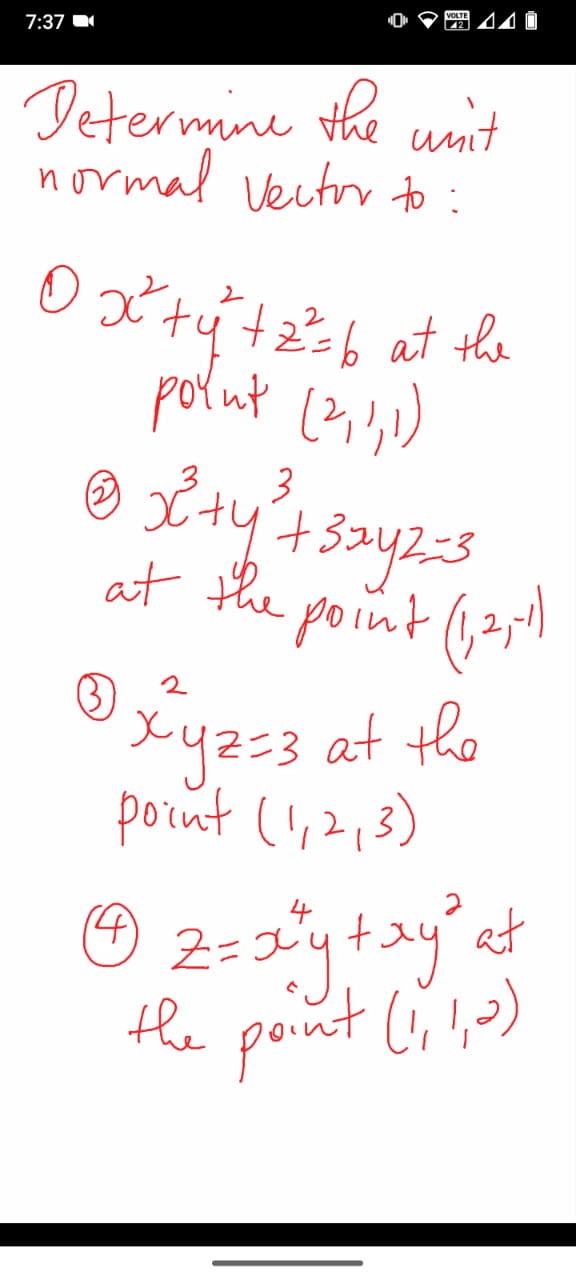 7:37
VOLTE 2
Determine the unit
normal vector to :
① x²+y²+z²=6 at the
point (2,1,1)
② x³+y³+3xyz=3
at the point (1,2,-1)
③ x²yz=3 at the
point (1,2,3)
④ z=x⁴y+xy² at
the point (1,1,2)